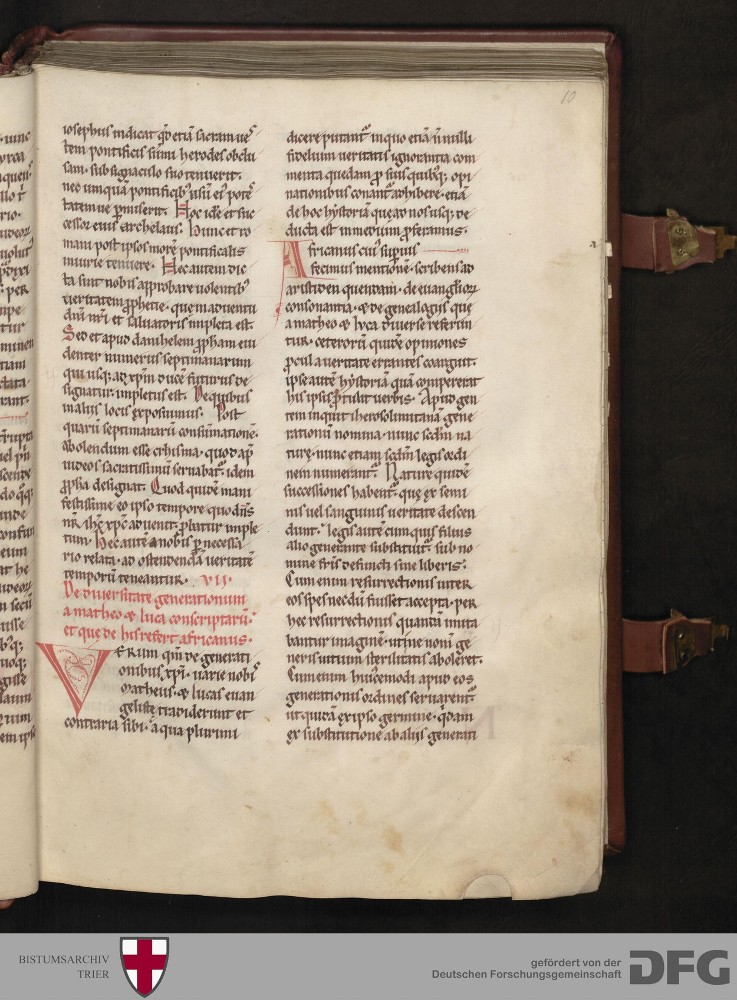 10
iosephus indicat qđ etiā sacram ueſ
tem pontificis sūmi herodes obclu
sam. sub signaculo suo tenuerit.
nec umquā pontificib; usū ei; poteſ
tatemue ꝑmiserit. Hoc idē et suc
cessor eius archelaus. Hinc et ro
mani post ipsos morē pontificalis
iniurie tenuere. Hec autem dic
ta sint nobis approbare uolentib;
ueritatem ꝓphetie. que in aduentu
dn̄i nr̄i et saluatoris impleta est.
Sed et apud danihelem ꝓpham eui
denter numerus septimanarum
qui usq; ad xp̄m ducē futurus de
signatur. impletus est. De quibus
in aliis locis exposuimus. Post
quarū septimanarū consūmationē.
abolendum esse crisma. quod ap̄
iudeos sacratissimū seruabat̄. idem
ꝓpha designat. Quod quidē mani
festissime eo ipso tempore quo dn̄s
nr̄ ih̄c xp̄c aduenit. ꝓbatur imple
tum. Hec autē a nobis ꝑ necessa
rio relata. ad ostendendā ueritatē
temporū teneantur. VII.
De diuersitate generationum
a matheo & luca conscriptarū.
et que de his refert africanus.
VERUM qm̄ de generati
onibus xp̄i. uarie nobis
Matheus & lucas euan
geliste tradiderunt et
contraria sibi. a qua plurimi
dicere putant̄. in quo etiā n̄ nulli
fidelium ueritatis ignorantia com
menta quedam ꝓ suis quibq; opi
nationibus conant̄ adhibere. etiā
de hoc hystoriā que ad nos usq; de
ducta est in medium ꝓferamus.
Africanus cui; suꝑius
fecimus mentionē. scribens ad
aristiden quendam. de euanglioꝝ
consonantia. & de genealogiis que
a matheo & luca diuerse referun
tur. ceterorū quidē opiniones
ꝓcul a ueritate errantes coarguit.
ipse autē hystoriā quā compererat
his ipsis ꝓtulit uerbis. Apud gen
tem inquit iherosolimitanā gene
rationū nomina. nunc scdm̄ na
turę. nunc etiam scdm̄ legis ordi
nem numerant̄. Nature quidē
successiones habent̄. que ex semi
nis uel sanguinis ueritate descen
dunt. legis autē cum quis filius
alio generante substituit̄. sub no
mine fr̄is defuncti sine liberis.
Cum enim resurrectionis inter
eos spes necdū fuisset accepta. per
hec resurrectionis quantū imita
bantur imaginē. uti ne nom̄ ge
neris uitium sterilitatis aboleret.
Cum enim hui;cemodi apud eos
generationis ordines seruarent̄.
ut quidā ex ipso germine. q̄dam
ex substitutione ab aliis generati
BISTUMSARCHIV
TRIER
gefördert von der
Deutschen Forschungsgemeinschaft
DFG